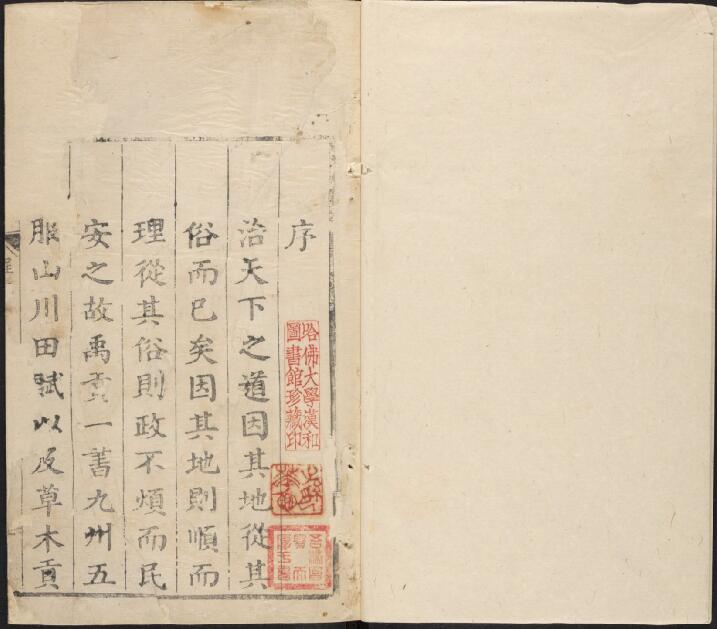 序
治天下之道因其地從其
俗而已矣因其地則順而
理從其俗則政不煩而民
安之故禹貢一書九州五
服山川田賦以及草木貢
哈佛大學漢和
圖書館珍藏印